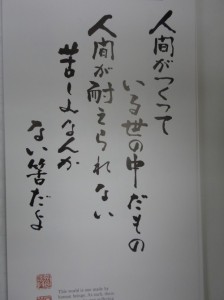 人間がつくって
いる世の中だもの
人間が耐えられない
苦しみなんか
ない筈だよ
This world is one made by